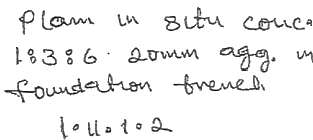 Plain in situ conc.
1:3:6. 20mm agg. in
foundation trench
1.11.1.2